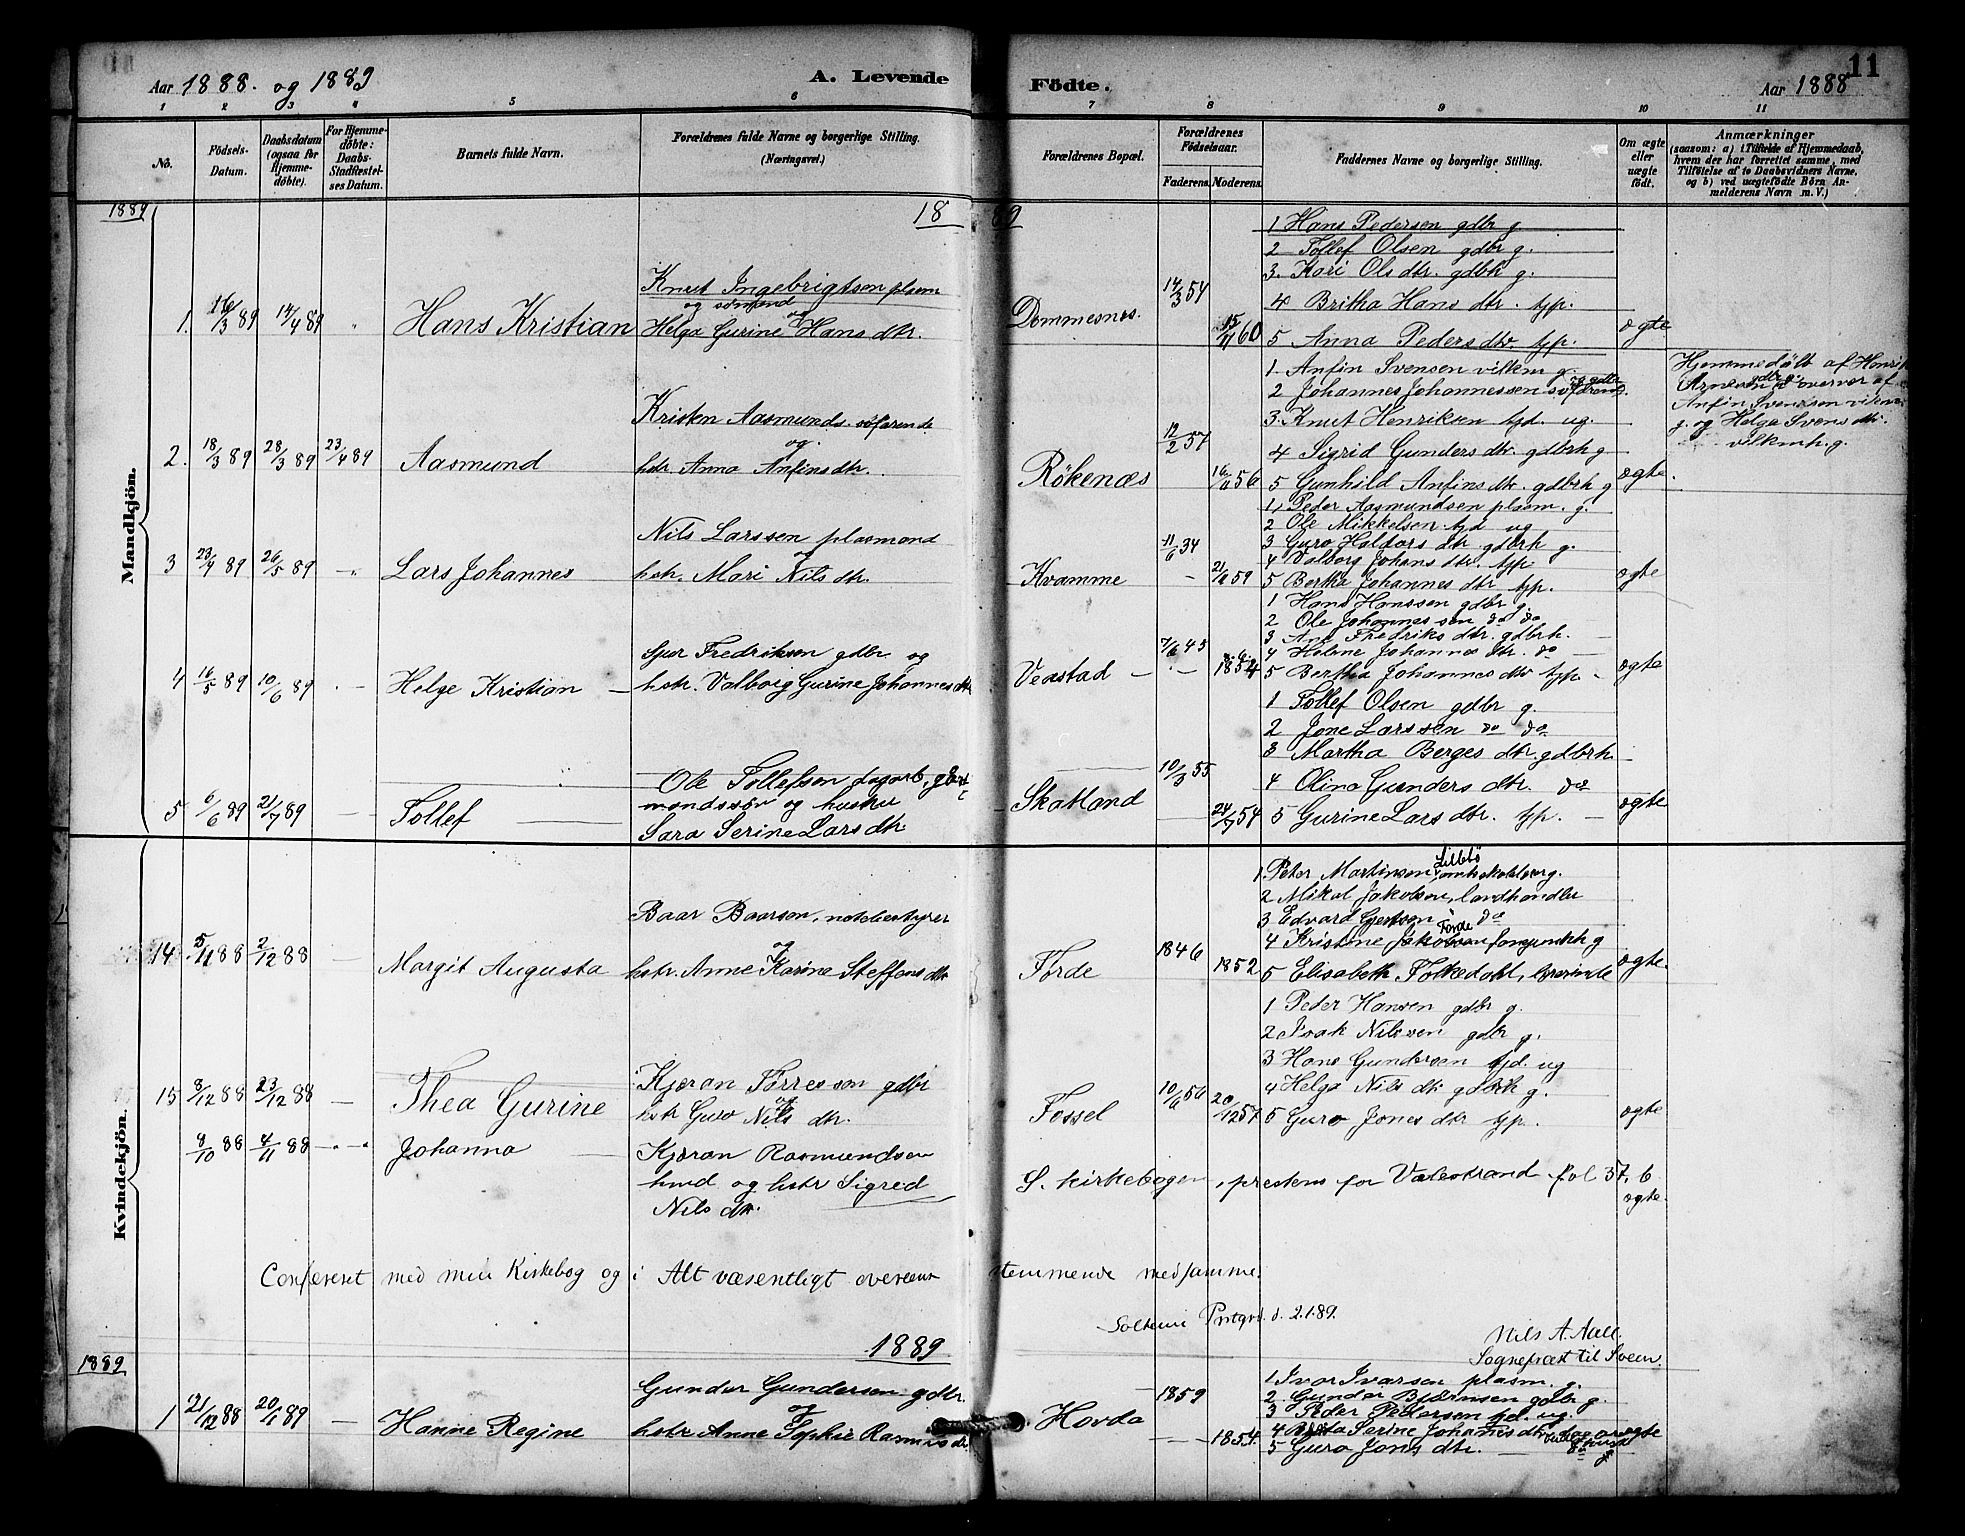 Aar 1888. og 1889
A. Levende
Födte.
Aar 1888
11
1 2 3 4 5 6 7 8 9 10 11
No.
Födsels-Datum.
Daabsdatum (ogsaa for Hjemme-döbte).
For Hjemme-döbte: Daabs-Stadfæstel-ses Datum.
Barnets fulde Navn.
Forældrenes fulde Navne og borgerlige Stilling. (Næringsvei.)
Forældrenes Bopæl.
Forældrenes Födselsaar.
Faderens. Moderens.
Faddernes Navne og borgerlige Stilling.
Om ægte eller uægte født.
Anmærkninger (saasom: a) i Tilfælde af Hjemmedaab, hvem der har forrettet samme, med Tilföielse af to Daabsvidners Navne, og b) ved uægtefödte Börn An-melderens Navn m. V.)
1889
1889
Mandkjön.
1. 16/3 89 14/4 89 Hans Kristian
Knut Ingebrigtsen plsm
og sömand og
Helga Gurine Hans dtr.
Dommesnes. 14/3 54 60
1 Hans Pedersen gdbr g
2 Tollef Olsen gdbr g.
3. Kari Ols dtr. gdbrh g.
4 Britha Hans dtr. typ.
5 Anna Peders dtr. typ.
ægte
2. 18/3 89 28/3 89 23/4 89 Aasmund
Kristen Aasmunds. söfarende
og
hstr. Anna Anfins dtr.
Rökenæs 12/2 57 56
1. Anfin Svensen vilkm g.
2 Johannes Johannessen
3. Knut Henriksen tjd. ug.
4 Sigrid Gunders dtr. gdbrh g
5 Gunhild Anfins dtr. gdbrh g
ægte.
Hjemmedöbt af Henrik
Arnesen gdbr g. i overvær af
Anfin Svendsen vilkm
g. og Helga Svens dtr.
vilkmh. g.
3 23/4 89 26/5 89 Lars Johannes
Nils Larssen plasmand
og
hstr. Mari Nils dtr.
Kvamme 11/6 34 59
1, Peder Aasmundsen plsm. g.
2 Ole Mikkelsen tjd ug
3 Guro Haldors dtr gdbrh g.
4 Valborg Johans dtr. typ
5 Bertha Johannes dtr typ.
ægte
4 16/5 89 10/6 89 Helge Kristian
Sjur Fredriksen gdbr og
hstr. Valborg Gurine Johannes dtr
Vestad 7/6 45 1854
1 Hans Hanssen gdbr g.
2 Ole Johannes sen do do
3 Ane Fredriks dtr. gdbrh.
4 Helene Johannes dtr. do
5 Bertha Johannes dtr typ.
ægte
5 6/6 89 21/7 89 Tollef
Ole Tollefsen dagarb,
mandssön og hustru
Sara Serine Lars dtr
Skatland 10/3 55 24/7 54
1 Tollef Olsen gdbr g.
2 Jone Larssen do do
3 Martha Berges dtr. gdbrh
4 Olina Gunders dtr. do
5 Gurine Lars dtr. typ.
ægte
Kvindekjön.
14 5/11 88 2/12 88 Margit Augusta
Baar Baarsen, notebestyrer
og
hstr. Anne Karine Steffens dtr
Förde 1846 1852
1. Peter Martinsen
2 Mikal Jakobsen, landhandler
3 Edvard Gjertsen do
4 Kristine Jakobsen
5 Elisabeth Folkedahl,
ægte
15 8/12 88 23/12 88 Thea Gurine
Kjæran Torressen gdbr
og
hstr Guro Nils dtr.
Fossel 10/6 56 20/12 57
1 Peder Hansen gdbr g.
2 Isak Nilssen gdbr g.
3 Hans Gundersen tjd. ug
4 Helga Nils dtr gdbrh g.
5 Guro Jones dtr typ.
ægte
8/10 88 4/11 88 Johanna
Kjæran Rasmundsen
hmd og hstr Sigred
Nils dtr.
S. kirkebogen, prestens for Valestrand fol 37, 6
ægte.
Confereret med min Kirkebog og i Alt væsentligt overens stemmende med samme.
Prstgrd. d. 2.1.89.
Nils A. Aall.
Sognepræst til Sveen
1889
1889
1 21/12 88 20/1 89 Hanne Regine
Gunder Gundersen gdbr.
og
hstr Anne Sophie Rasmus dtr
Hovda 1859 1854.
1 Ivar Ivarsen plasm. g.
2. Gunder Bjørnsen gdbr g.
3 Peder Pedersen tjd. ug.
4 Serine Johannes dtr
5 Guro Jons dtr.
ægte